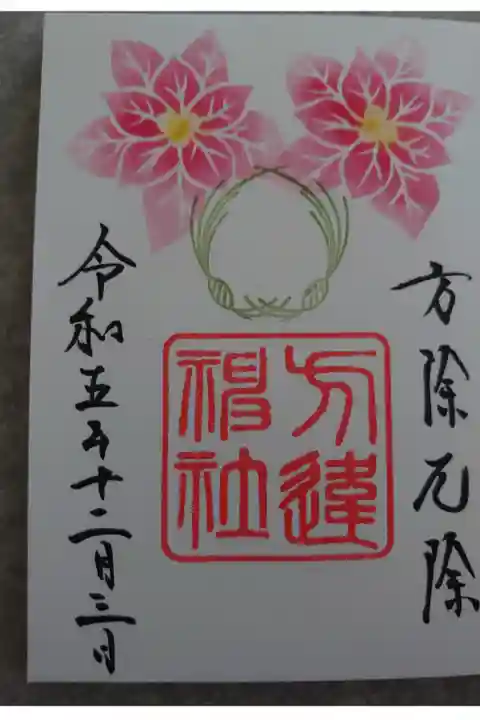 方除厄除
方違
神社
令和五年十二月三日